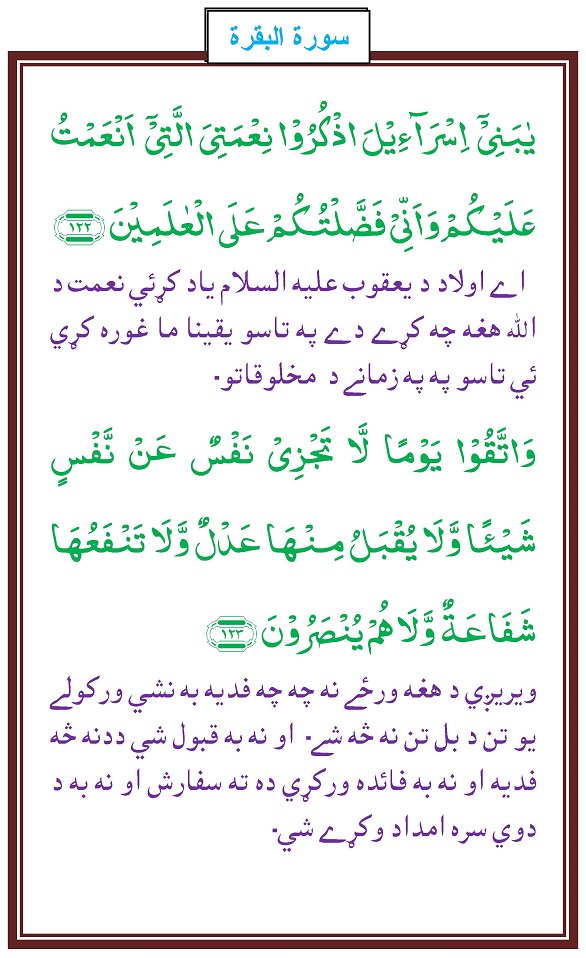 سورة البقرة
يٰبَنِىْۤ اِسْرَآءِيْلَ اذْكُرُوْا نِعْمَتِىَ الَّتِىْۤ اَنْعَمْتُ
عَلَيْكُمْ وَاَنِّىْ فَضَّلْتُكُمْ عَلَى الْعٰلَمِيْنَ ﴿۱۲۲﴾
اے اولاد د يعقوب عليه السلام ياد كړئي نعمت د
الله هغه چه كړے دے په تاسو يقينا ما غوره كړي
ئي تاسو په په زمانے د مخلوقاتو.
وَاتَّقُوْا يَوْمًا لَّا تَجْزِىْ نَفْسٌ عَنْ نَّفْسٍ
شَيْـًٔـا وَّلَا يُقْبَلُ مِنْهَا عَدْلٌ وَّلَا تَنْفَعُهَا
شَفَاعَةٌ وَّلَا هُمْ يُنْصَرُوْنَ ﴿۱۲۳﴾
ويريږي د هغه ورځے نه چه چه فديه به نشي وركولے
يو تن د بل تن نه څه شے. او نه به قبول شي ددنه څه
فديه او نه به فائده وركړي ده ته سفارش او نه به د
دوي سره امداد وكړے شي.